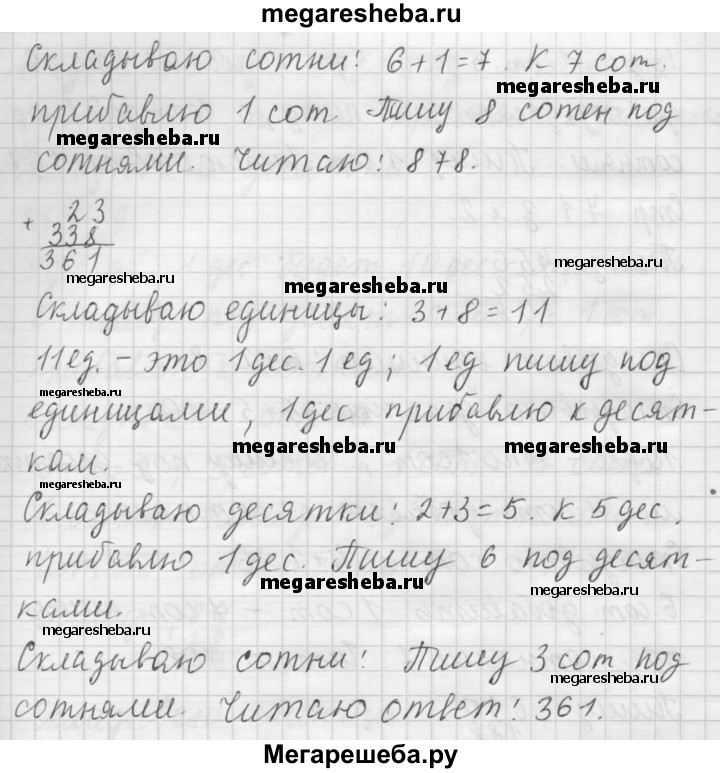 megaresheba.ru
Складываю сотни: 6+1=7. К 7 сот.
megaresheba.ru
прибавлю 1 сот. Пишу 8 сотен под
megaresheba.ru
сотнями. Читаю: 878.
+ 23
338
361
megaresheba.ru
megaresheba.ru
megaresheba.ru
Складываю единицы: 3+8=11
11ед. – это 1дес. 1ед; 1ед пишу под
megaresheba.ru
единицами, 1дес прибавлю к десят-
megaresheba.ru
megaresheba.ru
кам.
Складываю десятки: 2+3=5. К 5дес.
прибавлю 1дес. Пишу 6 под десят-
megaresheba.ru
megaresheba.ru
ками.
megaresheba.ru
Складываю сотни: Пишу 3 сот под
megaresheba.ru
сотнями. Читаю ответ: 361.
Мегарешеба.ру